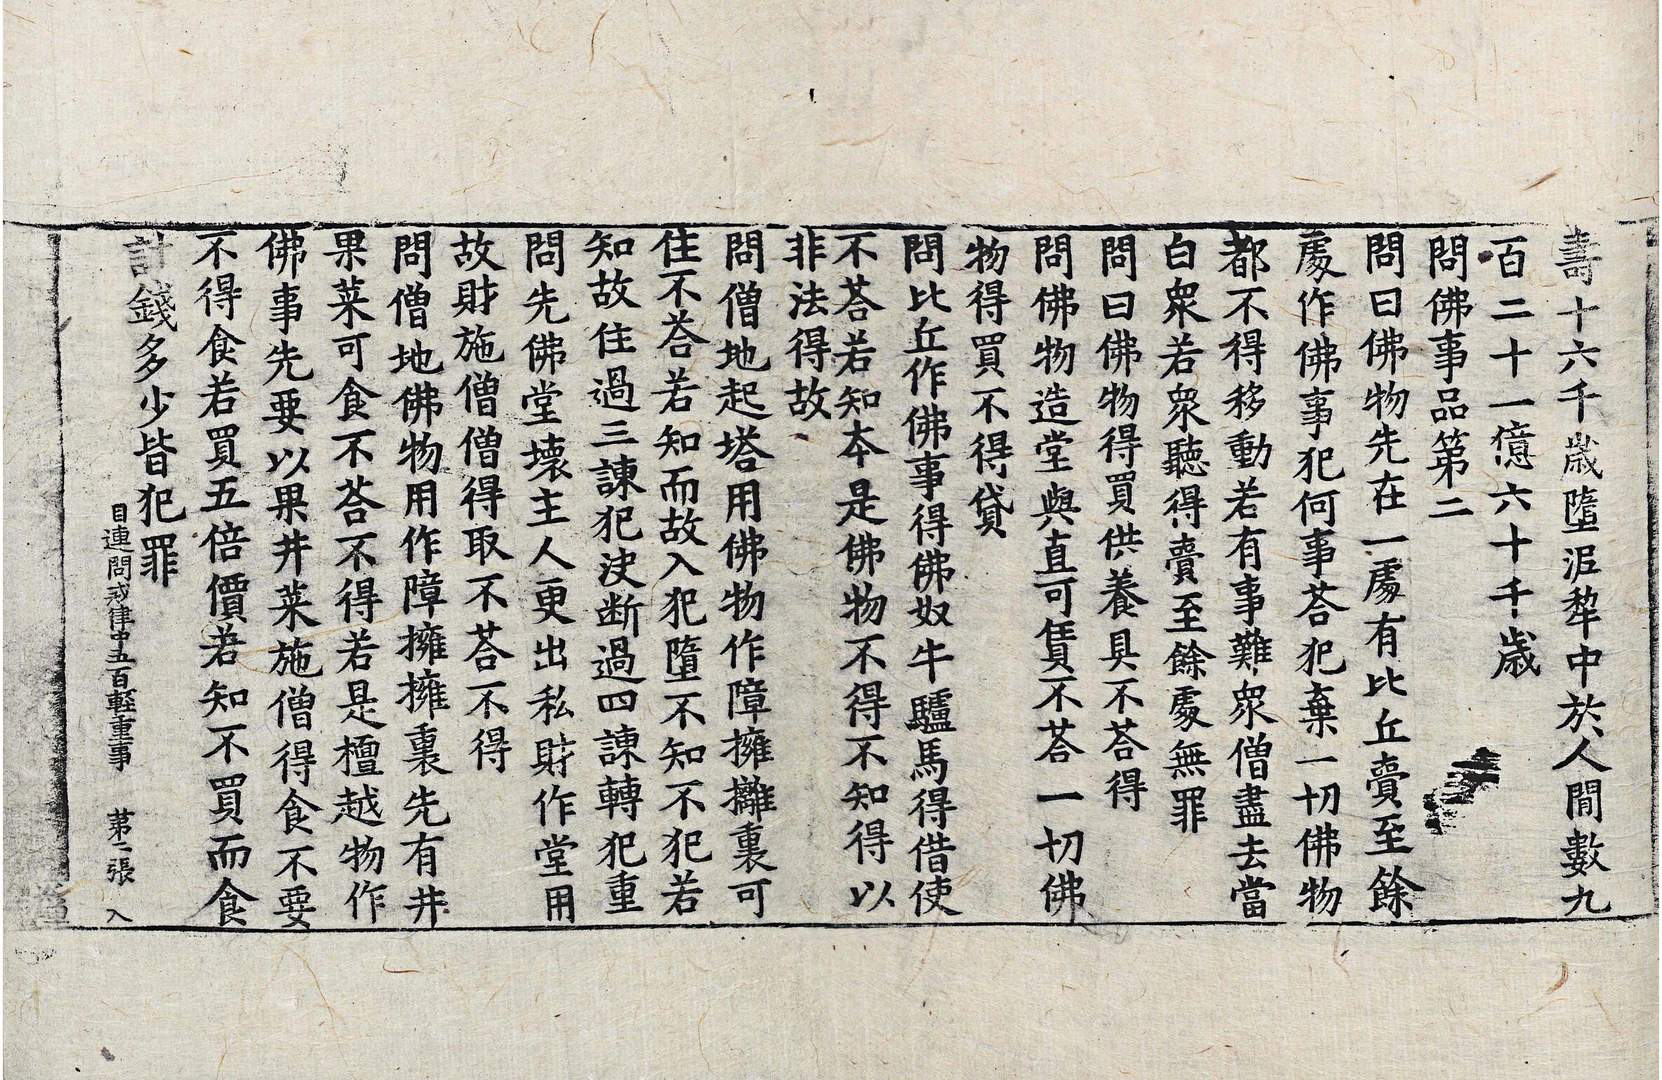 壽十六千歳墮泥犂中於人間數九
百二十一億六十千歳
問佛事品第二
問曰佛物先在一處有比丘賣至餘
處作佛事犯何事荅犯棄一切佛物
都不得移動若有事難衆僧盡去當
白衆若衆聽得賣至餘處無罪
問曰佛物得買供養具不荅得
問佛物造堂與直可賃不荅一切佛
物得買不得貸
問比丘作佛事得佛奴牛驢馬得借使
不荅若知本是佛物不得不知得以
非法得故
問僧地起塔用佛物作障擁擁裏可
住不荅若知而故入犯墮不知不犯若
知故住過三諫犯決断過四諫轉犯重
問先佛堂壞主人更出私財作堂用
故財施僧僧得取不荅不得
問僧地佛物用作障擁擁裏先有井
果菜可食不荅不得若是檀越物作
佛事先要以果井菜施僧得食不要
不得食若買五倍價若知不買而食
計錢多少皆犯罪
目連問戒律中五百輕重事　第二張　入